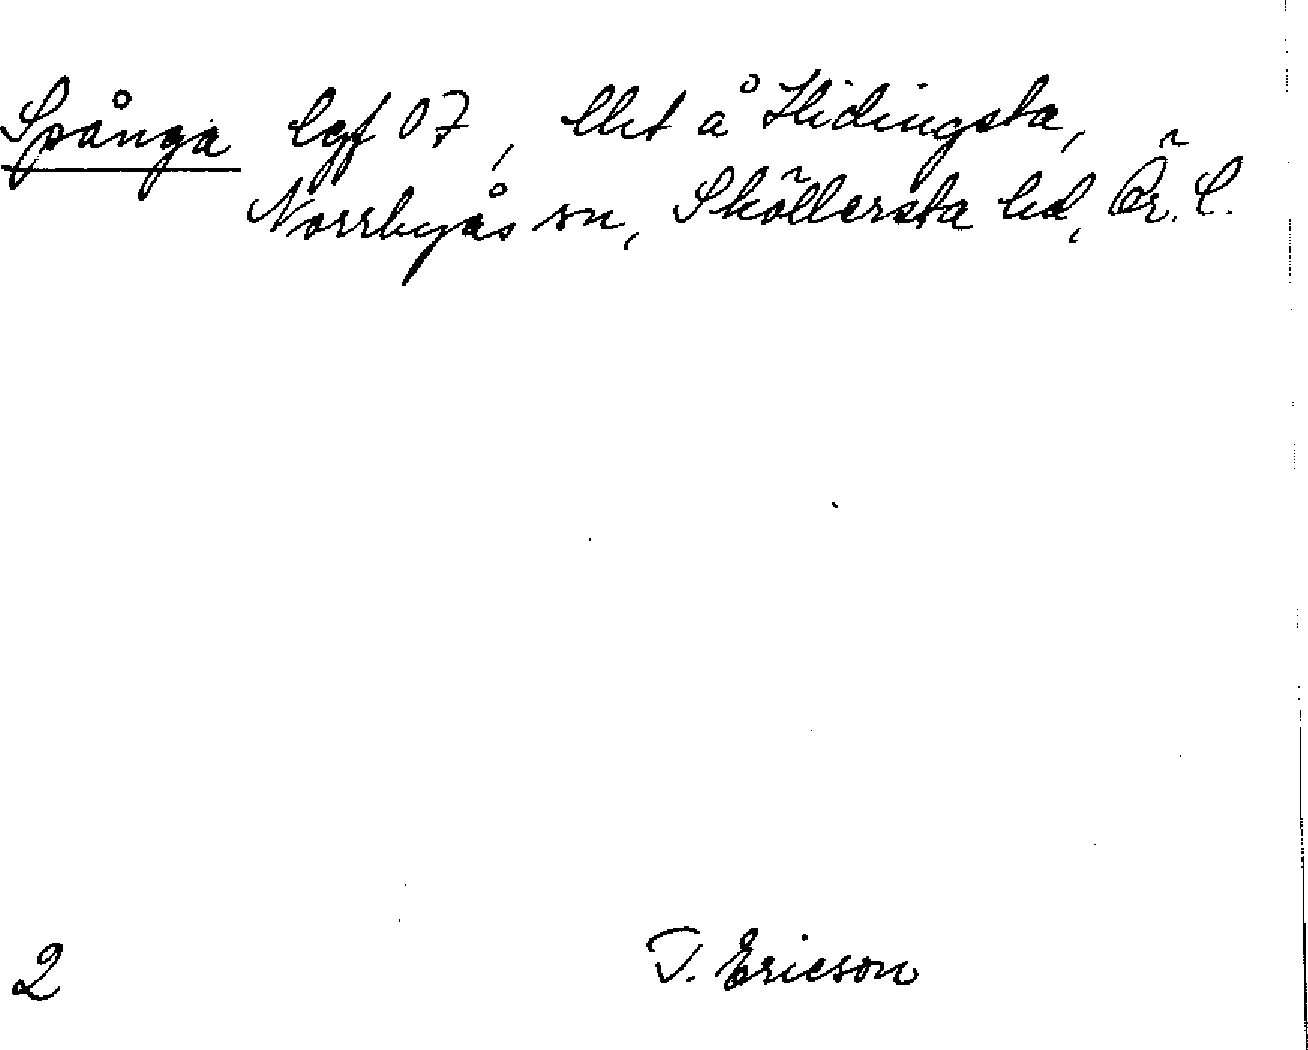 Spånga lgf 07, Chst å Hidingsta,
Norrbyås sn, Sköllersta hd, Ör. l.
2 T. Ericson